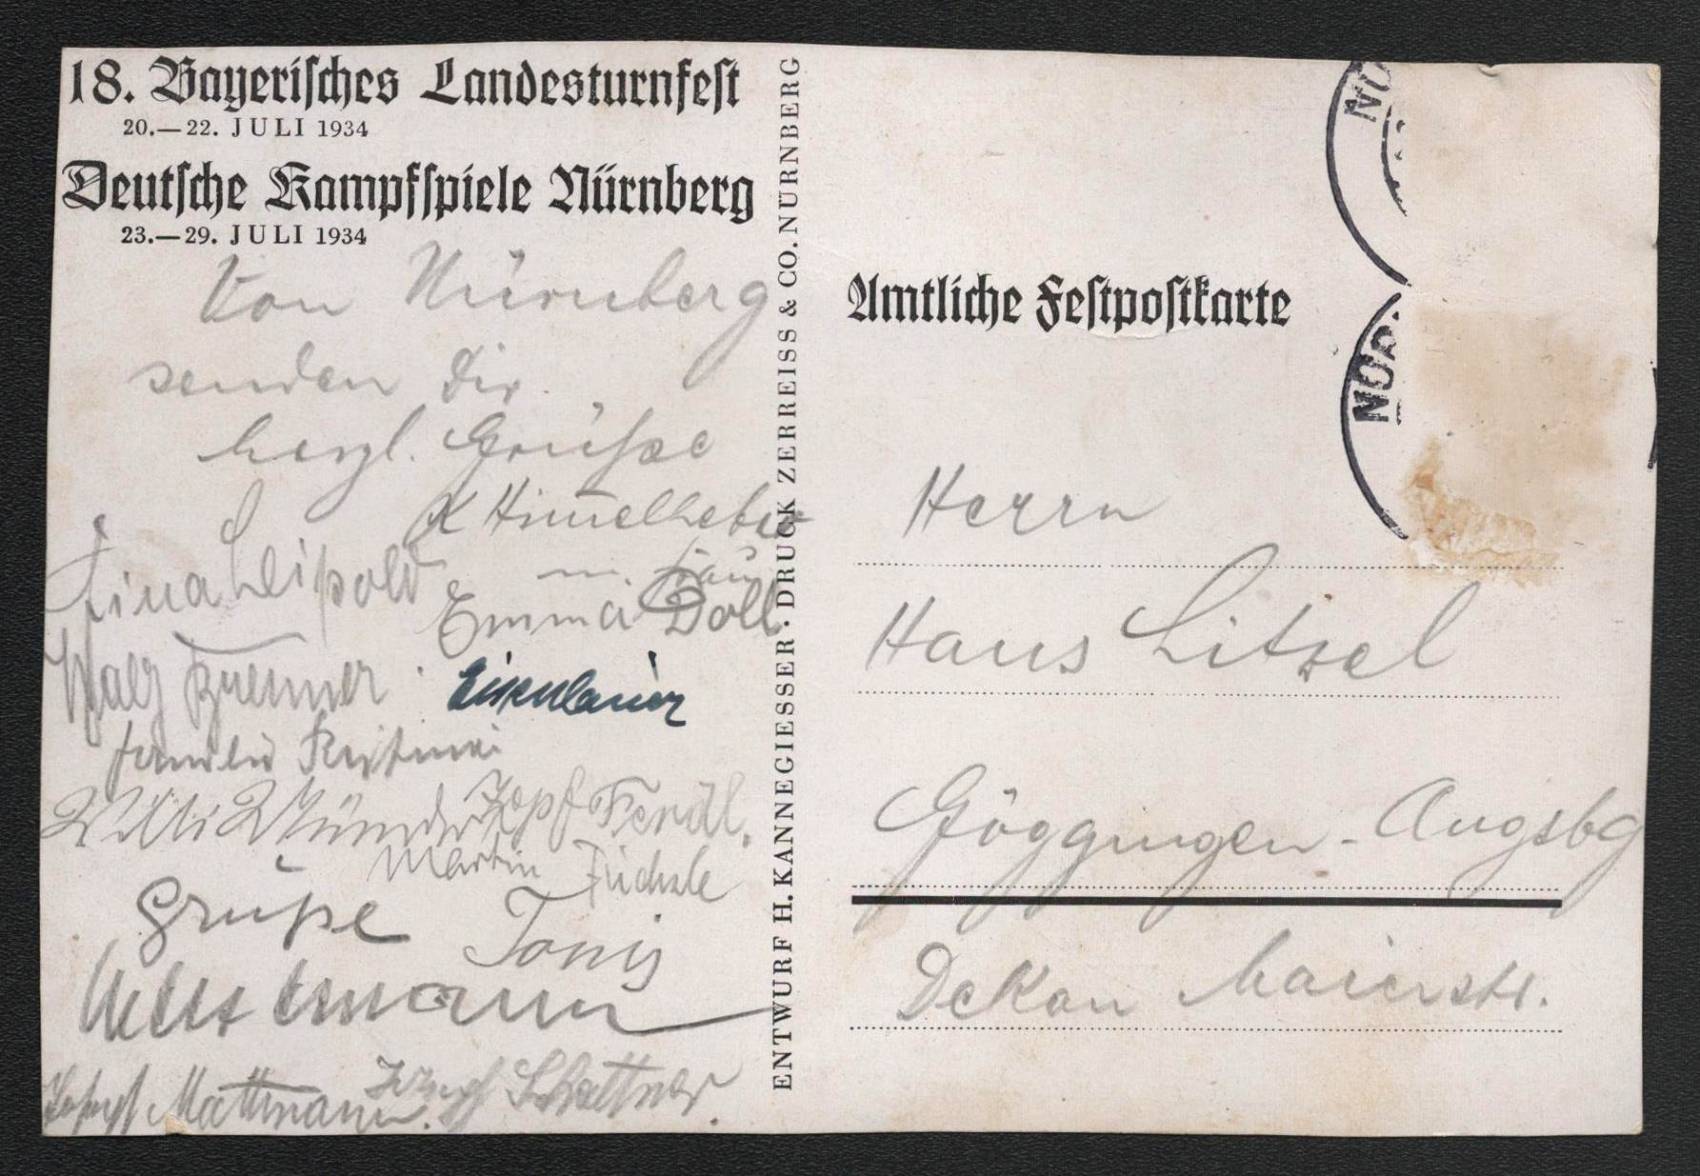 18. Bayerisches Landesturnfest
20.—22. JULI 1934
Deutsche Kampfspiele Nürnberg
23.—29. JULI 1934
Von Nürnberg
senden Dir
herzl. Grüße
K Himmelheber
m. Frau
Lina Leipold
Emma Doll
Eisenlauer
Willi
Zopf Ferdl.
Martin Füchsle
Grüße
Josef Mattmann.
Josef Schattner
ENTWURF H. KANNEGIESSER · DRUCK ZERREISS & CO. NÜRNBERG
Amtliche Festpostkarte
Herrn
Hans Litzel
Göggingen - Augsbg
Dekan Maierstr.